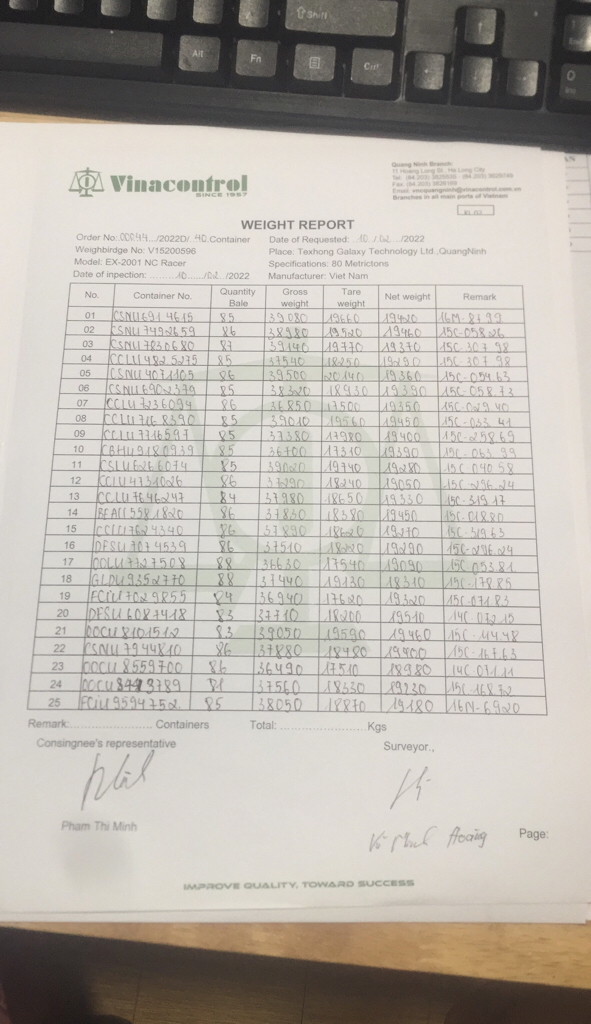 Shift
Alt
Fn
Ctrl
0
Ins
Vinacontrol
SINCE 1957
Quang Ninh Branch:
11 Hoang Long St., Ha Long City
Branches in all main ports of Vietnam
WEIGHT REPORT
Order No: 00044.../2022D/ 40.Container Date of Requested: 10 / 02 /2022
Weighbirdge No: V15200596 Place: Texhong Galaxy Technology Ltd.,QuangNinh
Model: EX-2001 NC Racer Specifications: 80 Metrictons
Date of inpection: 10 /02 /2022 Manufacturer: Viet Nam
No. Container No. Quantity Bale Gross weight Tare weight Net weight Remark
01 CSNU6914615 85 39080 19660 19420 16M-8799
02 CSNU7492659 86 38980 19520 19460 15C-058.26
03 CSNU7830680 87 39140 19770 19370 15C 307 98
04 CCLU4825275 85 37540 18250 19290 15C 307 98
05 CSNU4071105 86 39500 20140 19360 15C-054.63
06 CSNU6902379 85 38320 18930 19390 15C-058.73
07 CCLU7236094 86 36850 17500 19350 15C-029.40
08 CCLU7168390 85 39010 19560 19450 15C-033.41
09 CCLU7716597 85 37380 17980 19400 15C-258.69
10 CBHU9180939 85 36700 17310 19390 15C-063.99
11 CSLU6266074 85 39020 19740 19280 15C 040 58
12 CCLU4731026 86 37290 18240 19050 15C-296.24
13 CCLU7646247 84 37980 18650 19330 15C-319.17
14 86 37830 18380 19450 15C-018.80
15 CCLU7624340 86 37890 18620 19270 15C-319.63
16 DFSU7074539 86 37510 18220 19290 15C-296.24
17 OOLU7727508 88 36630 17540 19090 15C-053.81
18 GLDU9352770 88 37440 19130 18310 15C-178.85
19 FCIU7029855 84 36940 17620 19320 15C-071.83
20 DFSU6087418 83 37710 18200 19510 14C 072.15
21 OOCU8101512 83 39050 19590 19460 15C-414.48
22 CSNU7944810 86 37880 18480 19400 15C-167.63
23 OOCU8559700 86 36490 17510 18980 14C 071.11
24 81 37560 18330 19230 15C-168.72
25 FCIU9594752 85 38050 18870 19180 16N-6920
Remark:.................... Containers Total: ....................Kgs
Consingnee's representative Surveyor.,
Pham Thi Minh
Page:
IMPROVE QUALITY, TOWARD SUCCESS